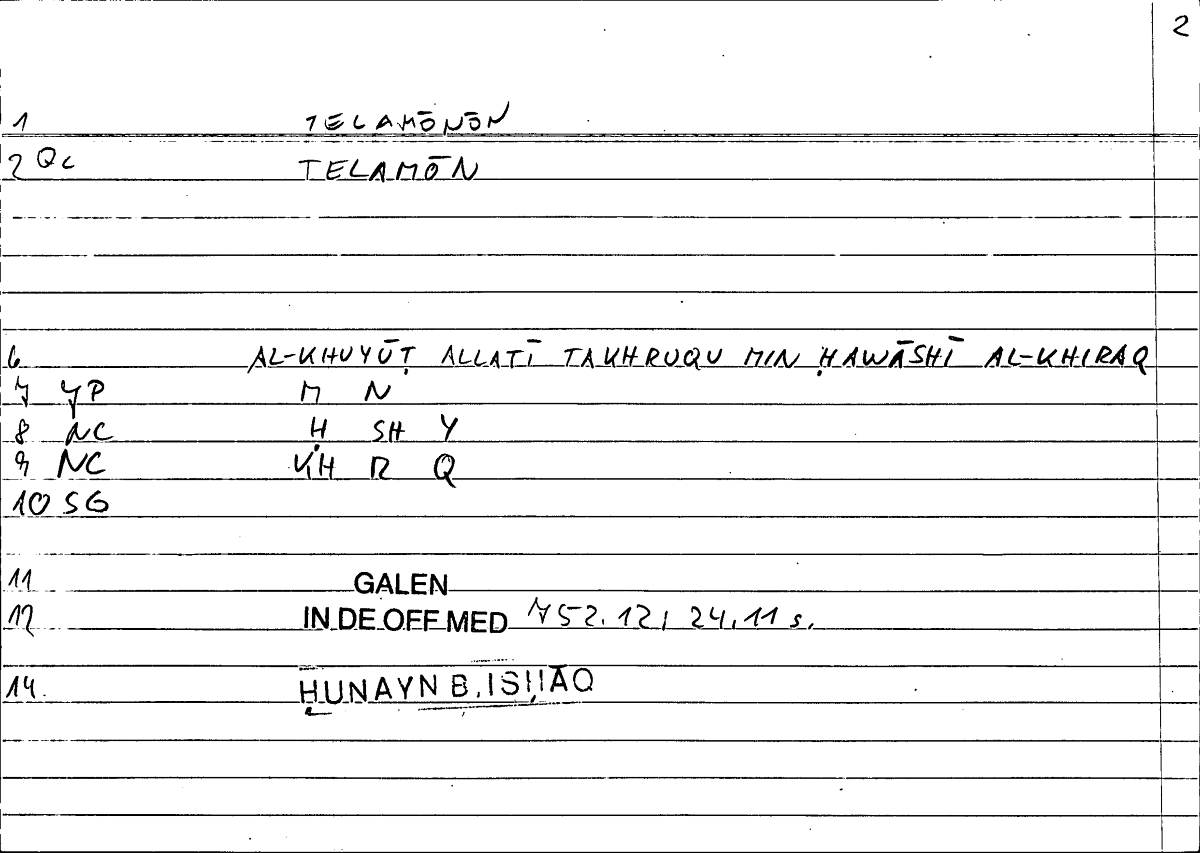 2
1 TELAMŌNŌN
2 Qc TELAMŌN
6 AL-KHUYŪṬ ALLATĪ TAKHRUQU MIN ḤAWĀSHĪ AL-KHIRAQ
7 YP M N
8 NC Ḥ SH Y
9 NC KH R Q
10 SG
11 GALEN
12 IN DE OFF MED 752.12; 24.11 s.
14. ḤUNAYN B. ISḤĀQ